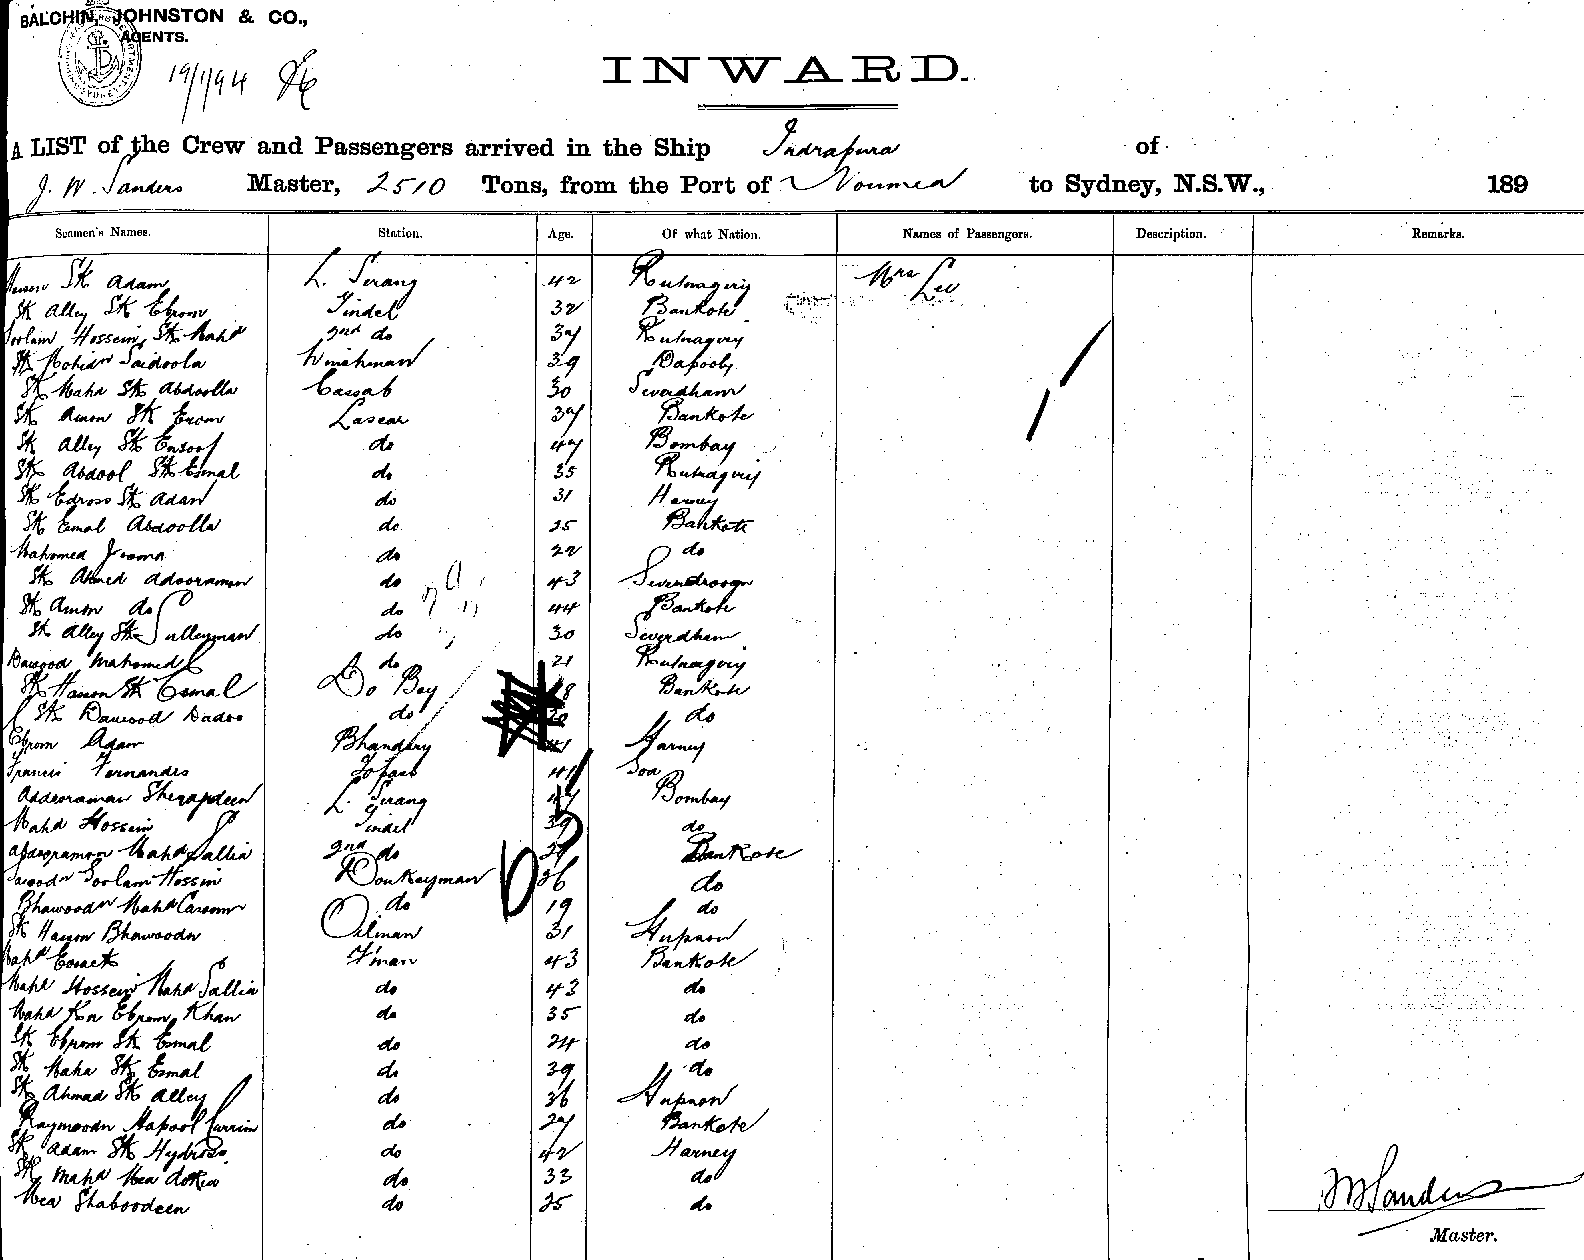 BALCHIN, JOHNSTON & CO.,
AGENTS.
19/1/94
INWARD.
A LIST of the Crew and Passengers arrived in the Ship Indrapura of
J. W. Sanders Master, 2510 Tons, from the Port of Noumea to Sydney, N.S.W., 189
Seamen's Names. Station. Age. Of what Nation. Names of Passengers. Description. Remarks.
Sk Adam L. Serang 42 Rutnagery Mrs Lee
Sk Alley Sk Ebrom Tindel 32 Bankote
Goolam Hossein Sk Mahd 2nd do 37 Rutnagery
Sk Mohidn Saidoola Winchman 39 Dapooly
Sk Mahd Sk Abdoolla Cassab 30 Severdham
Sk Amon Sk Ebrom Lascar 37 Bankote
Sk Alley Sk Essoof do 47 Bombay
Sk Abdool Sk Esmal do 35 Rutnagery
Sk Edross Sk Adam do 31 Harney
Sk Esmal Abdoolla do 25 Bankote
Mahomed Jooma do 22 do
Sk Ahmed Adooraman do 43 Severdroog
Sk Amon do do 44 Bankote
Sk Alley Sk Sulleyman do 30 Severdham
Dawood Mahomed do 21 Rutnagery
Sk Hasson Sk Esmal Do Boy 18 Bankote
Sk Dawood Dadoo do do
Ebrom Adam Bhandary 41 Harney
Francis Fernandes Topass 41 Goa
Abdooraman Sherafdeen L. Serang 47 Bombay
Mahd Hossein Tindel 39 do
Abdooramon Mahd Sallia 2nd do 37 Bankote
Goolam Hossein Donkeyman 36 do
Bhawoodn Mahd Cassom do 19 do
Sk Hasson Bhawoodn Oilman 31 Hupnon
Mahd Essack F'man 43 Bankote
Mahd Hossein Mahd Sallia do 43 do
Mahd Kn Ebrom Khan do 35 do
Sk Ebrom Sk Esmal do 24 do
Sk Mahd Sk Esmal do 39 do
Sk Ahmad Sk Alley do 36 Hupnon
Raymoodn Hapool Currim do 27 Bankote
Sk Adam Sk Hydross do 42 Harney
Sk Mahd Mea do 33 do
Mea Shaboodeen do 25 do
J W Sanders
Master.